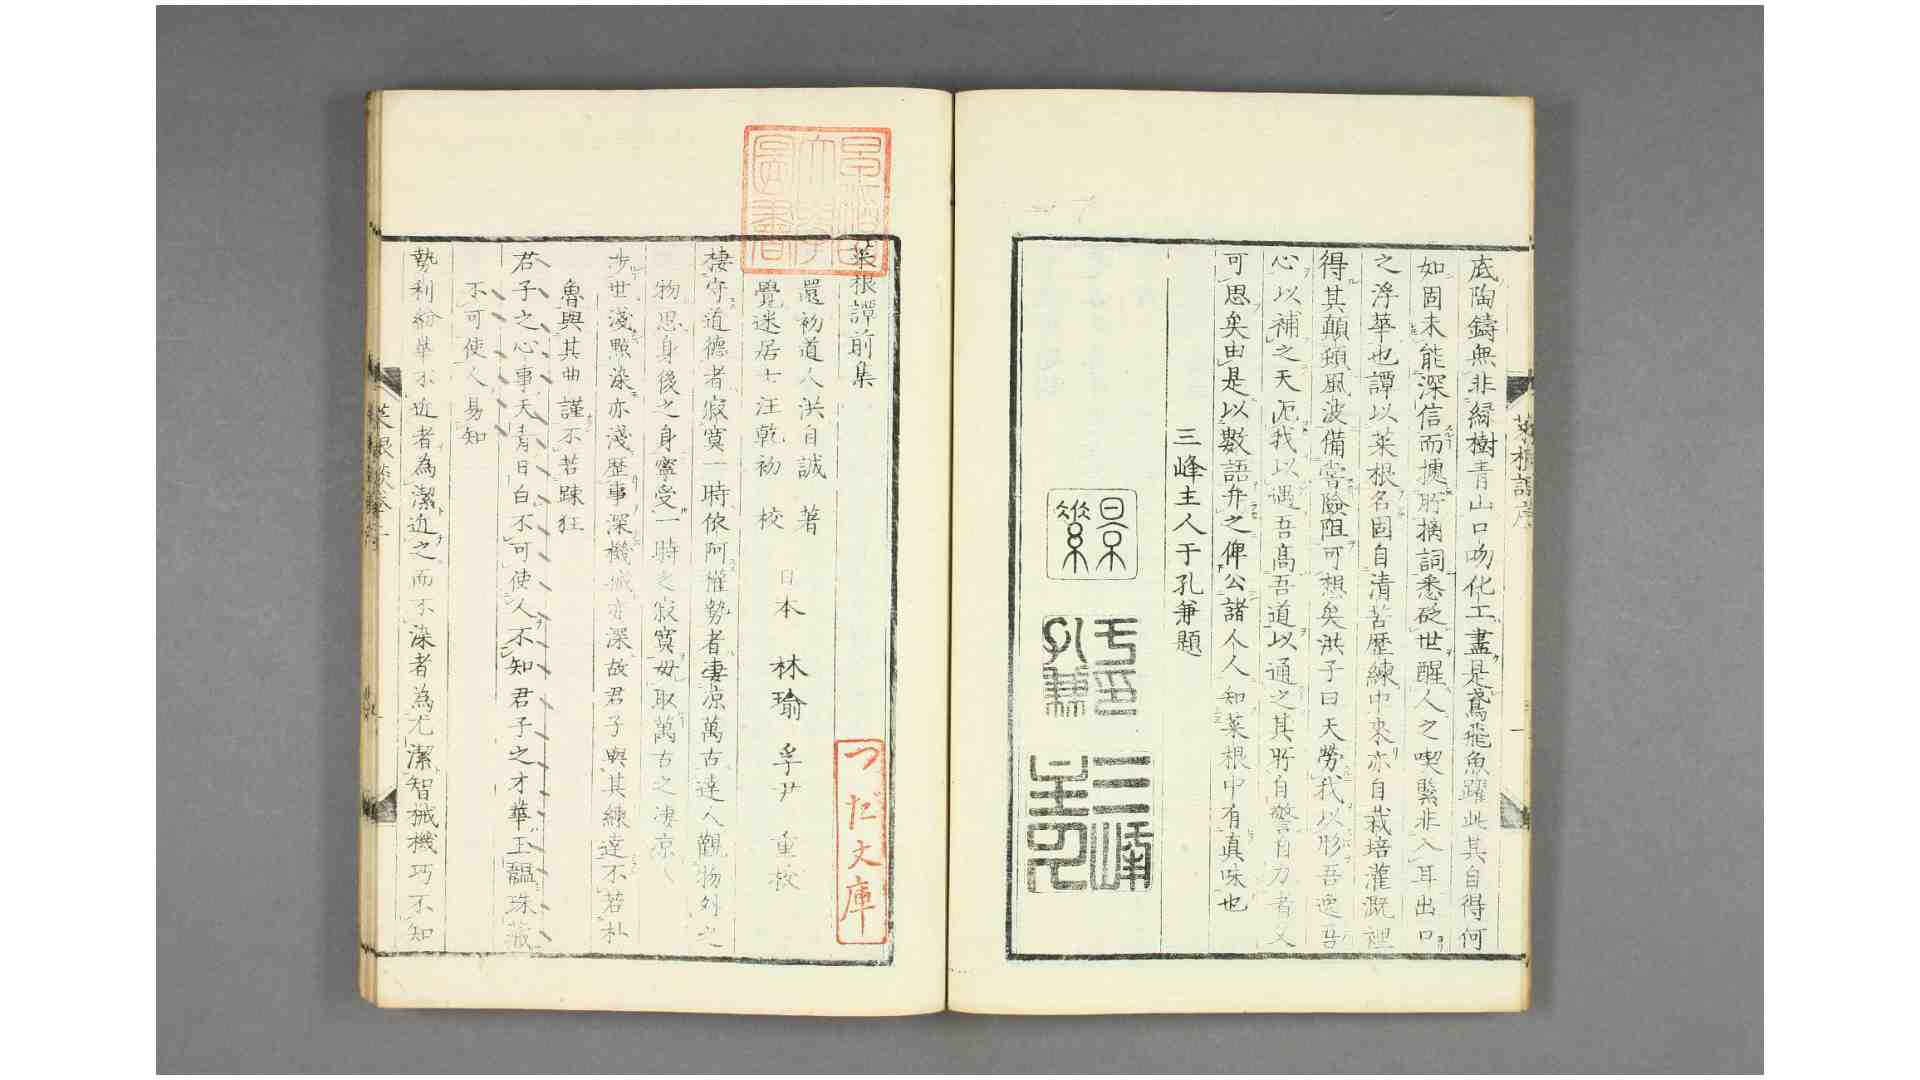 底陶鑄無非緑樹青山口吻化工盡是鳶飛魚躍此其自得何
如固未能深信而摭所摛詞悉砭世醒人之喫緊非入耳出口
之浮華也譚以菜根名固自清苦歴練中來亦自栽培灌溉裡
得其顛頓風波備嘗險阻可想矣洪子曰天勞我以形吾逸吾
心以補之天阨我以遇吾高吾道以通之其所自警自力者又
可思矣由是以數語弁之俾公諸人人知菜根中有真味也
三峰主人于孔兼題
于孔兼印
三峰主人
菜根譚前集
還初道人洪自誠著
覺迷居士汪乾初校
日本 林瑜 孚尹 重校
棲守道德者寂寞一時依阿權勢者凄凉萬古達人觀物外之
物思身後之身寧受一時之寂寞毋取萬古之凄凉
涉世淺點染亦淺歴事深機械亦深故君子與其練達不若朴
魯與其曲謹不若踈狂
君子之心事天青日白不可使人不知君子之才華玉韞珠藏
不可使人易知
勢利紛華不近者為潔近之而不染者為尤潔智械機巧不知
つだ文庫